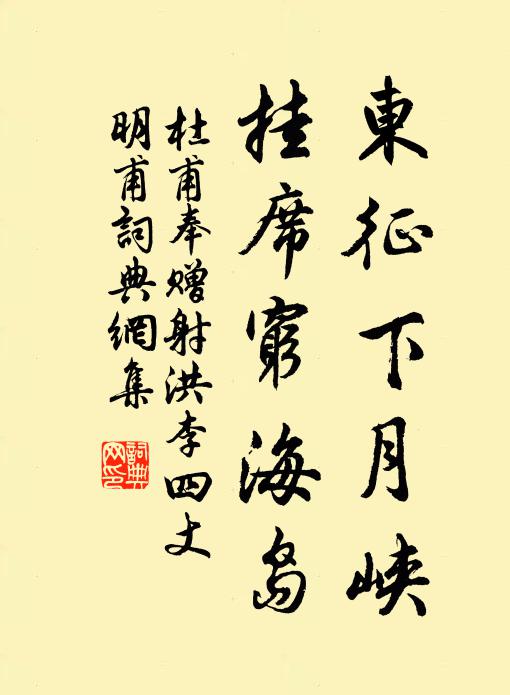 東征下月峽
挂席窮海島
杜甫奉赠射洪李四丈
明甫詞典網集
詞典
网印